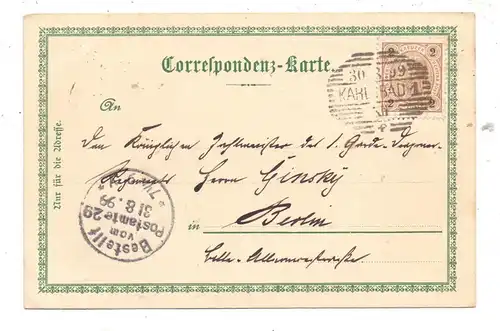 Correspondenz-Karte.
2 2
2 2
30 8 99
KARLSBAD 1
An
Den Königlichen Zahlmeister des 1. Garde-Dragoner-
Regiments Herrn Ginsky
in Berlin
Belle-Alliancestraße
Nur für die Adresse.
Bestellt
vom
Postamte 29
31.8.99